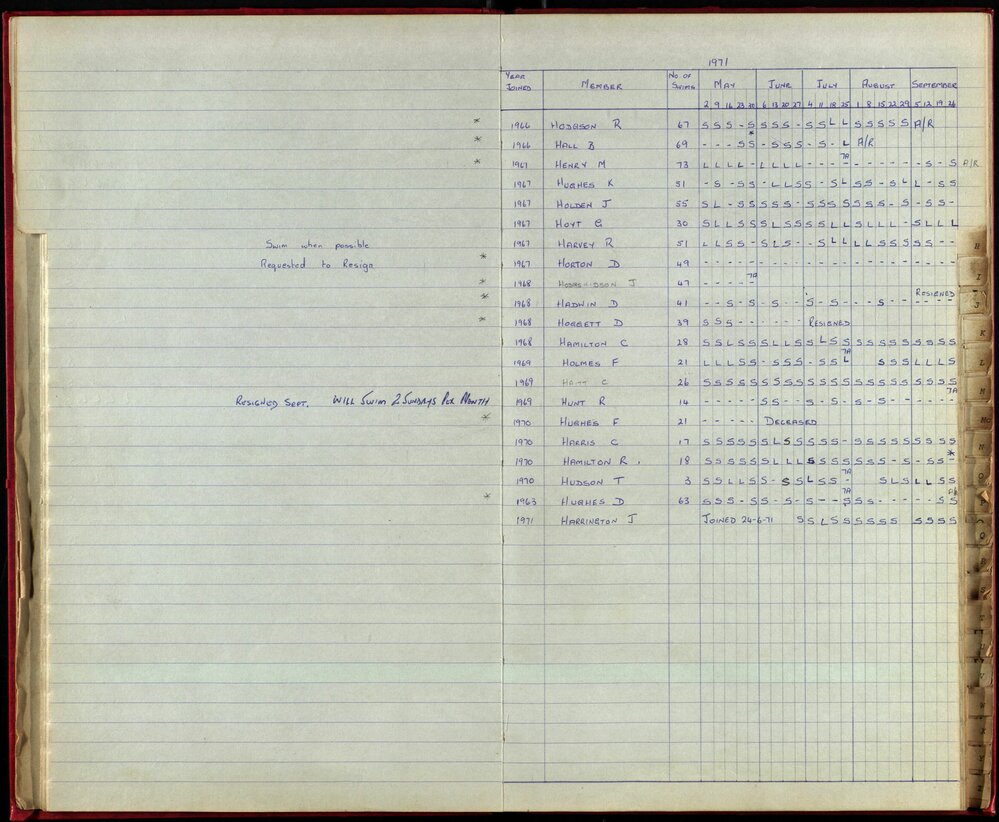 1971
YEAR JOINED MEMBER No OF SWIMS MAY JUNE JULY AUGUST SEPTEMBER
2 9 16 23 30 6 13 20 27 4 11 18 25 1 8 15 22 29 5 12 19 26
* 1966 HODGSON R 67 S S S - S S S S - S S L L S S S S S A/R
* 1966 HALL B 69 - - - S S - S S S - S - L A/R
* 1967 HENRY M 73 L L L L - L L L L - - - 7A - - - - - - S - S A/R
1967 HUGHES K 51 - S - S S - L L S S - S L S S - S L L - S S
1967 HOLDEN J 55 S L - S S S S S - S S S S S S S - S - S S -
1967 HOYT G 30 S L L S S S L S S S S L L S L L L - S L L L
Swim when possible 1967 HARVEY R 51 L L S S - S L S - - S L L L L S S S S S - -
Requested to Resign * 1967 HORTON D 49 - - - - - - - - - - - - - - - - - - - - - -
* 1968 J 47 - - - - - 7A
* 1968 HADWIN D 41 - - S - S - S - - S - S - - - S - - - - - - RESIGNED
* 1968 HOGGETT D 39 S S S - - - - - - RESIGNED
1968 HAMILTON C 28 S S L S S S L L S S L S S S S S S S S S S S
1969 HOLMES F 21 L L L S S - S S S - S S L 7A S S S L L L S
1969 C 26 S S S S S S S S S S S S S S S S S S S S S S
RESIGNED SEPT. WILL SWIM 2 SUNDAYS PER MONTH 1969 HUNT R 14 - - - - - S S - - S - S - S - S - - - - - - 7A
* 1970 HUGHES F 21 - - - - - DECEASED
1970 HARRIS C 17 S S S S S S L S S S S S - S S S S S S S S S
1970 HAMILTON R. 18 S S S S S S L L L S S S S S S S - S - S S - *
1970 HUDSON T 3 S S L L S S - S S L S S - 7A S L S L L S S
* 1963 HUGHES D 63 S S S - S S - S - S - - S 7A S S - - - - S S
1971 HARRINGTON J JOINED 24-6-71 S S L S S S S S S S S S S
H
I
J
K
L
M
Mc
N
O
P
Q
R
S
T
V
W
X
Y
Z